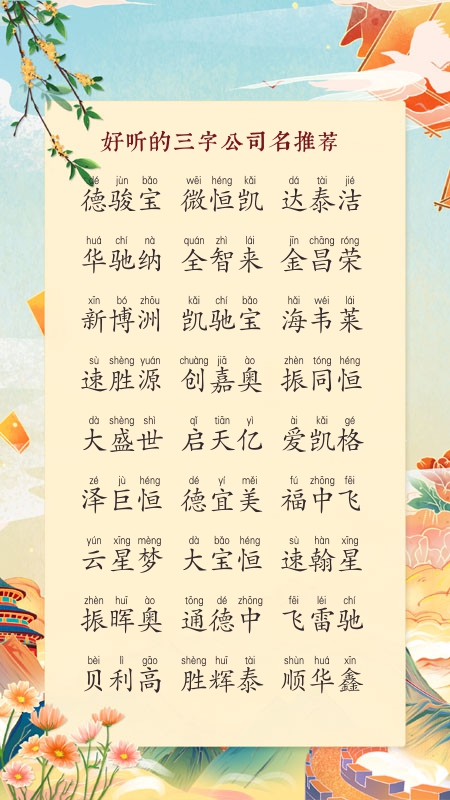 好听的三字公司名推荐
dé jùn bǎo wēi héng kǎi dá tài jié
德骏宝 微恒凯 达泰洁
huá chí nà quán zhì lái jīn chāng róng
华驰纳 全智来 金昌荣
xīn bó zhōu kǎi chí bǎo hǎi wéi lái
新博洲 凯驰宝 海韦莱
sù shèng yuán chuàng jiā ào zhèn tóng héng
速胜源 创嘉奥 振同恒
dà shèng shì qǐ tiān yì ài kǎi gé
大盛世 启天亿 爱凯格
zé jù héng dé yí měi fú zhōng fēi
泽巨恒 德宜美 福中飞
yún xīng mèng dà bǎo héng sù hàn xīng
云星梦 大宝恒 速翰星
zhèn huī ào tōng dé zhōng fēi léi chí
振晖奥 通德中 飞雷驰
bèi lì gāo shèng huī tài shùn huá xīn
贝利高 胜辉泰 顺华鑫